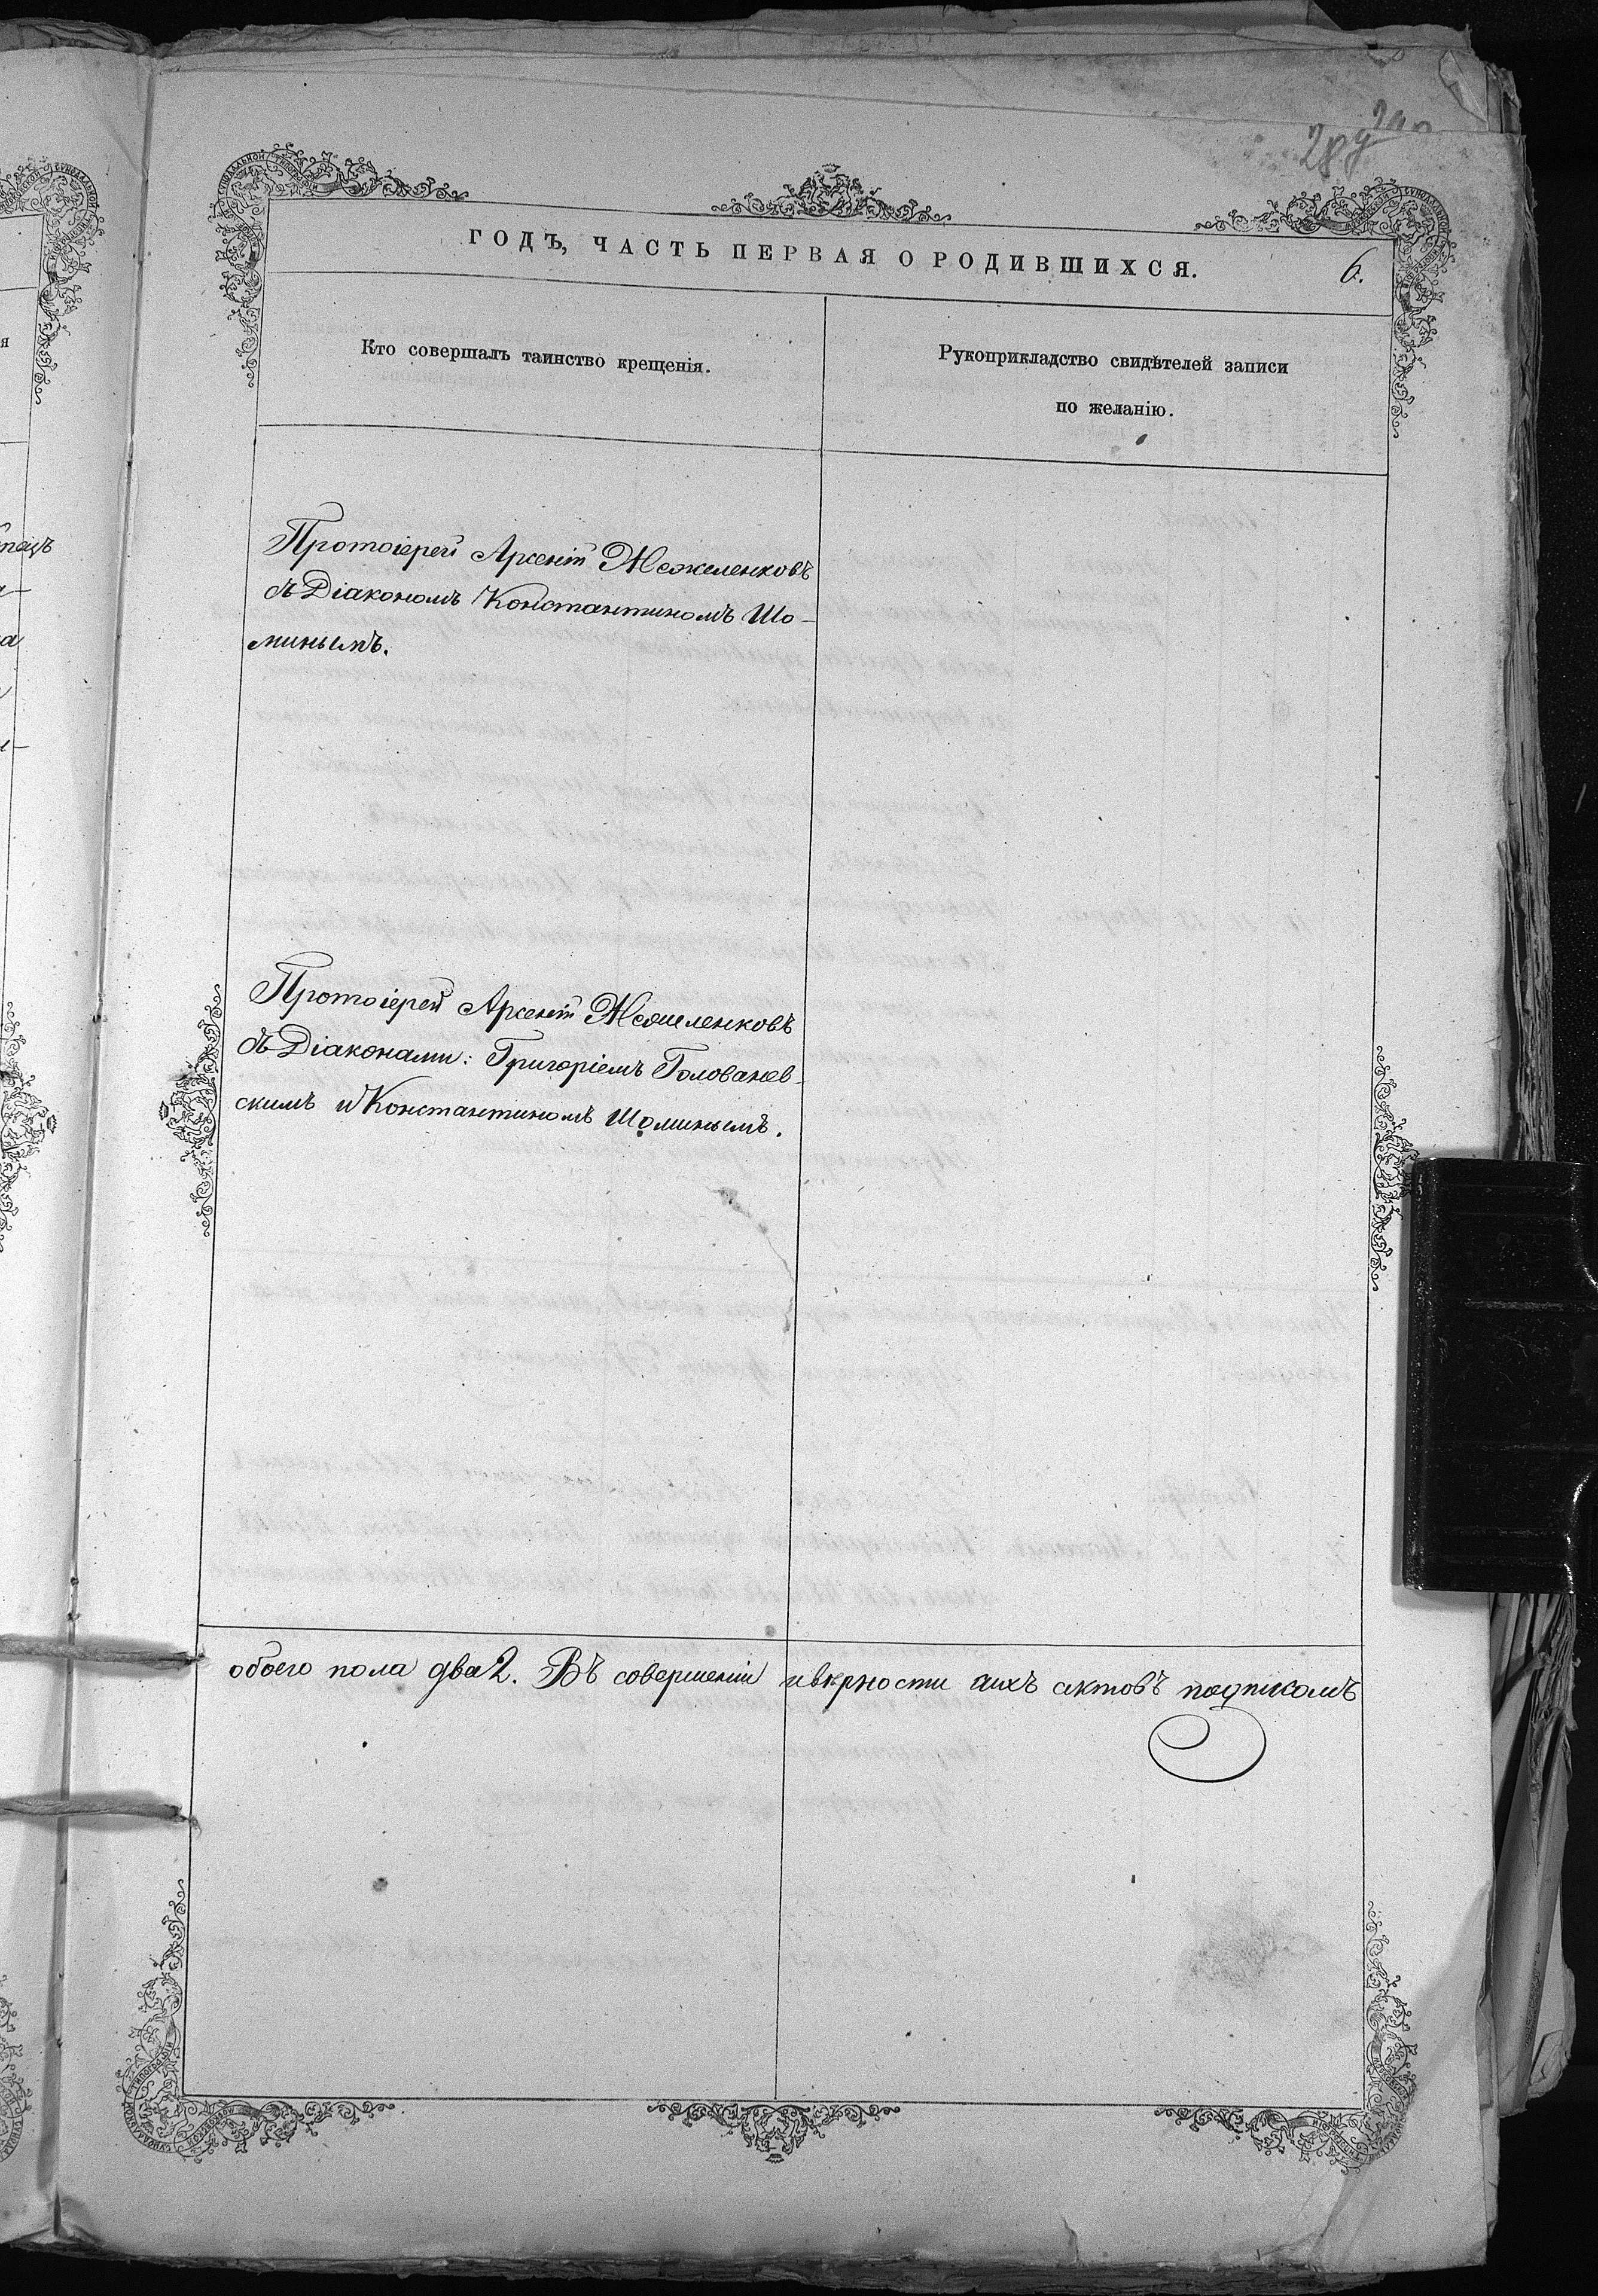 ГОДЪ, ЧАСТЬ ПЕРВАЯ О РОДИВШИХСЯ.
6.
Кто совершалъ таинство крещенія.
Рукоприкладство свидѣтелей записи
по желанію.
Протоіерей Арсеній
съ Діакономъ Константиномъ Шо-
минымъ.
Протоіерей Арсеній
съ Діаконами: Григоріемъ Голованев-
скимъ и Константиномъ Шоминымъ.
обоего пола два 2. Въ совершеніи и вѣрности сихъ актовъ подписомъ